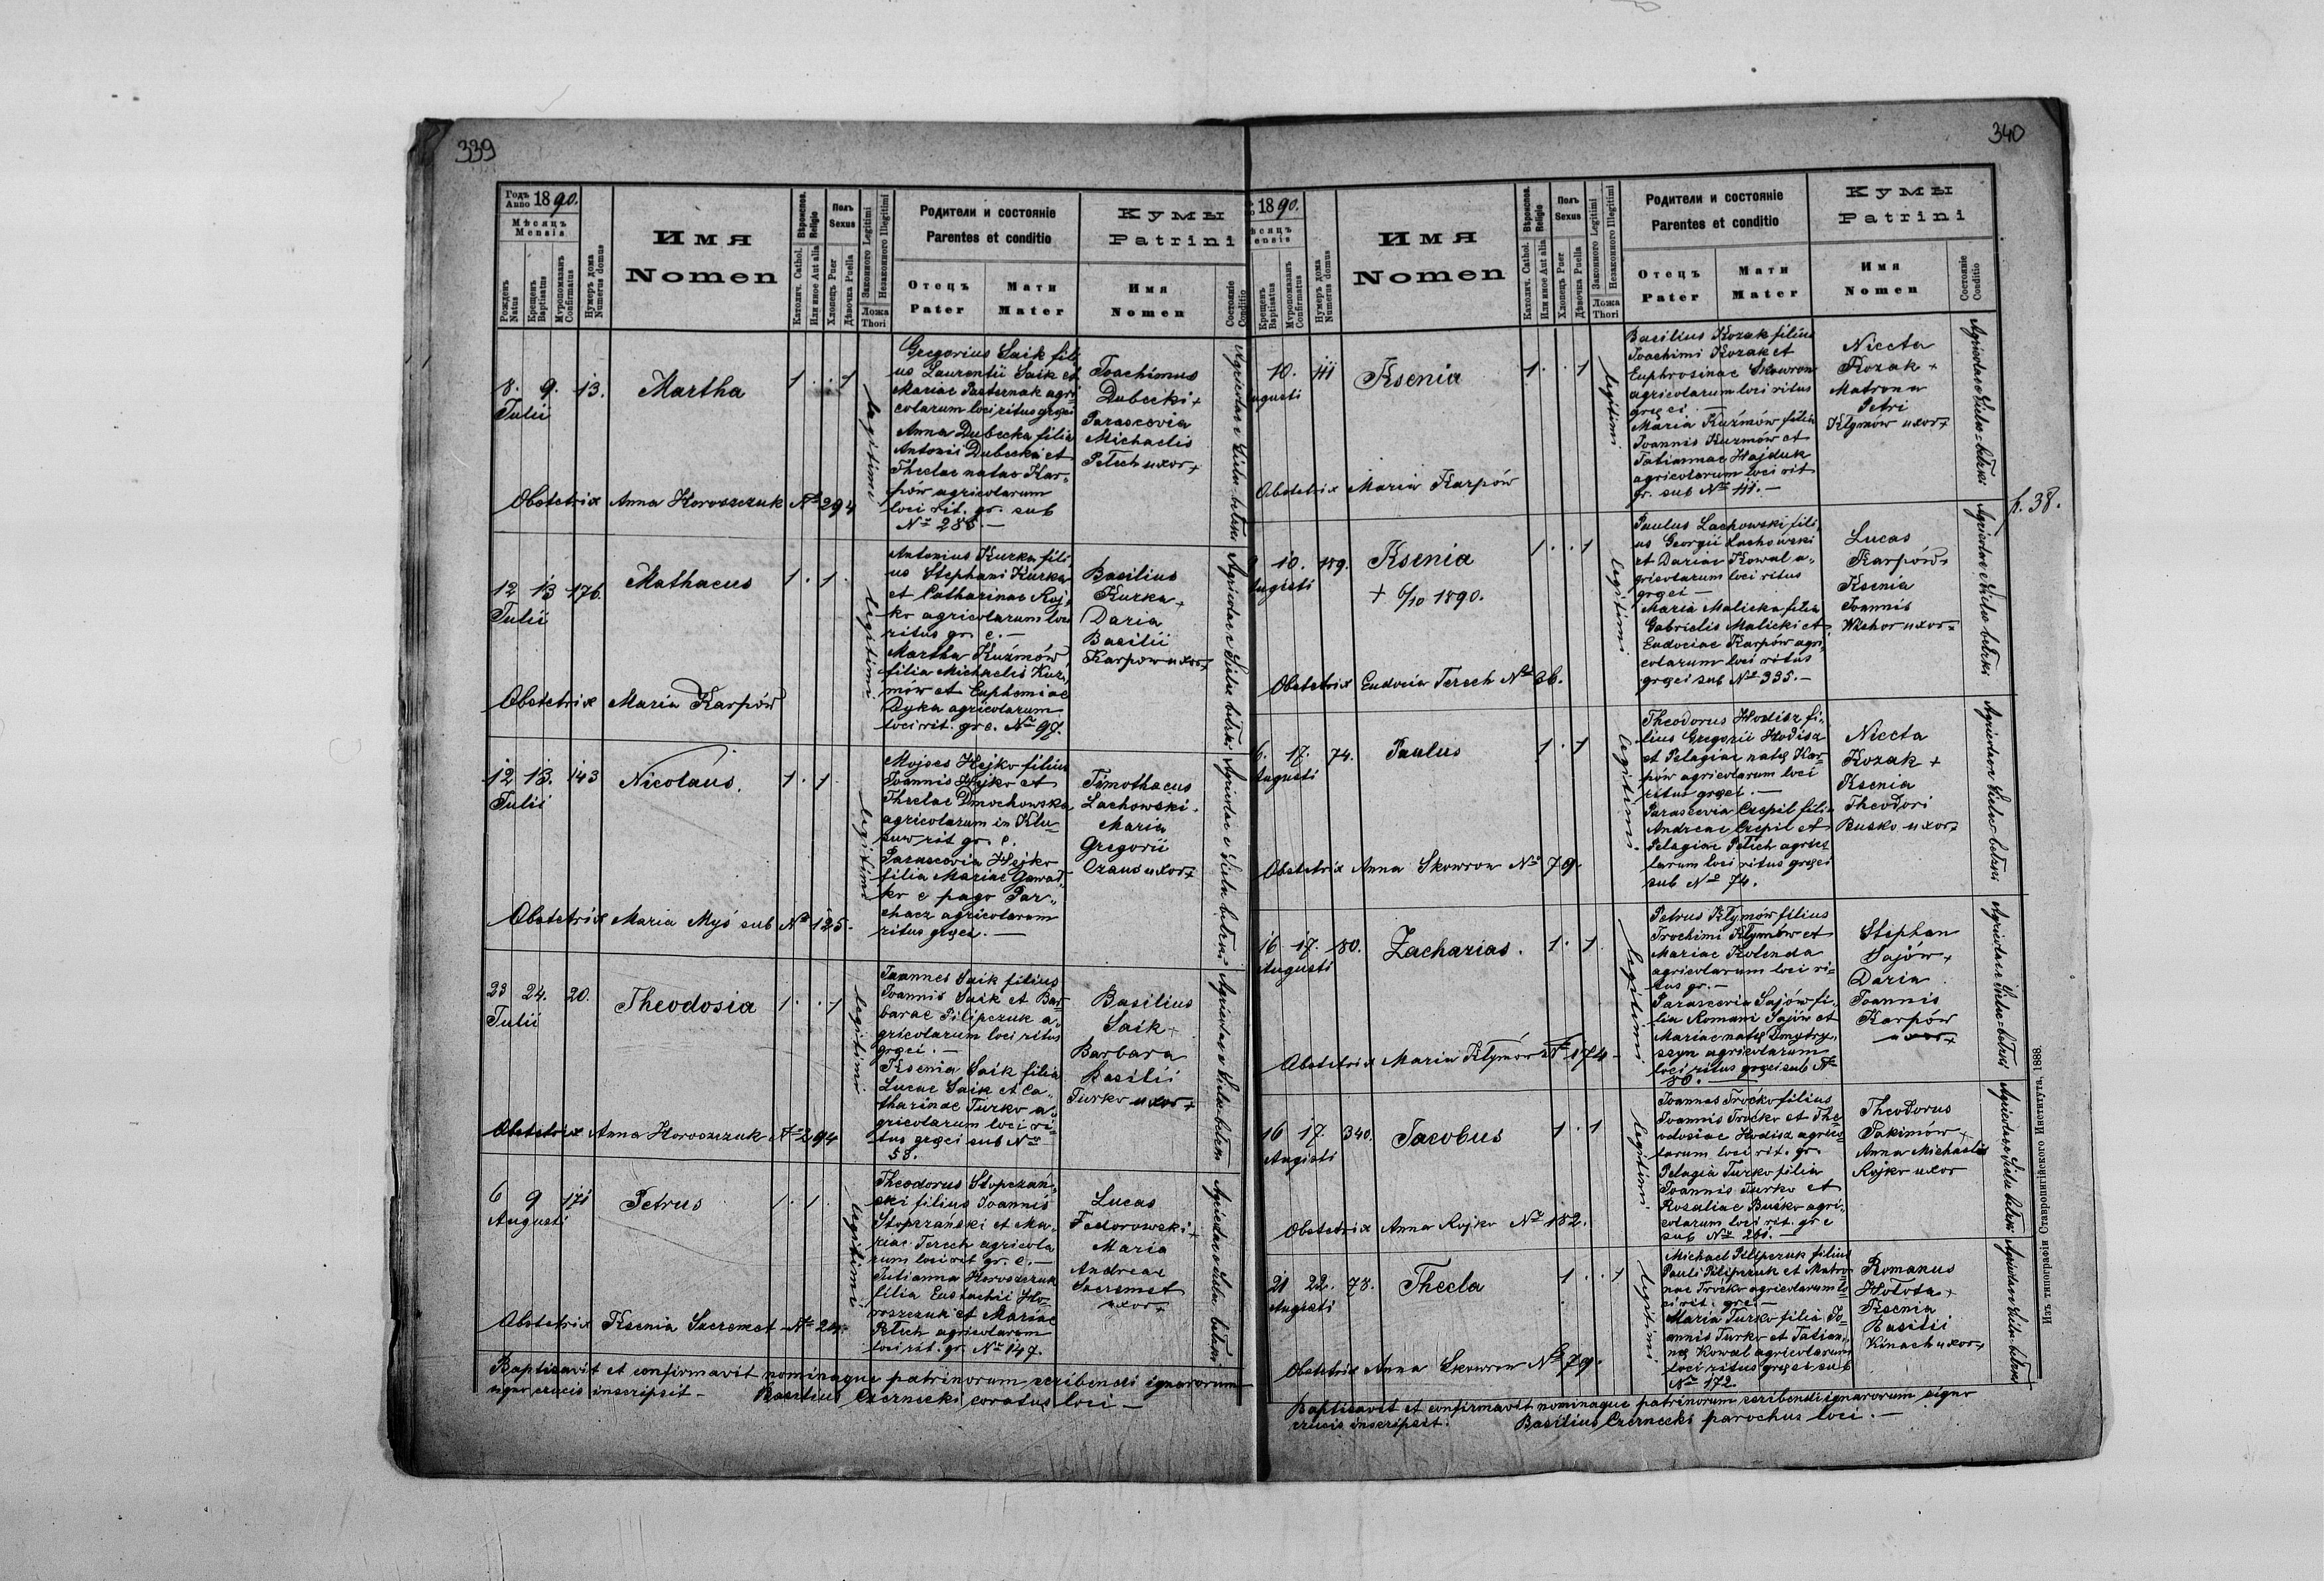 339
Годъ Anno 1890.
Мѣсяцъ Mensis
Рожденъ Natus
Крещенъ Baptisatus
Мѵропомазанъ Confirmatus
Нумеръ дома Numerus domus
Имя
Nomen
Вѣроиспов. Religio
Католич. Cathol.
Или иное Aut alia
Полъ Sexus
Хлопецъ Puer
Дѣвочка Puella
Законного Legitimi
Незаконного Illegitimi
Ложа Thori
Родители и состоянiе
Parentes et conditio
Отецъ
Pater
Мати
Mater
Кумы
Patrini
Имя
Nomen
Состоянiе Conditio
8. 9. 13.
Julii
Martha
1 . . 1
legitimi
Gregorius Saik fili
us Laurentii Saik et
Mariae Pasternak agri
colarum loci ritus graeci
Anna Dubecka filia
Antonii Dubecki et
Theclae natae Kar„
pów agricolarum
loci rit. gr. sub
№ 288.—
Joachimus
Dubecki +
Parascevia
Michaelis
Petech uxor +
Obstetrix Anna Horoszczuk № 294
12 13 176.
Julii
Mathaeus
1 . 1 .
legitimi
Antonius Kurka fili„
us Stephani Kurka
et Catharinae Roj„
ko agricolarum loci
ritus gr. c.—
Martha Kuźmów
filia Michaelis Kuź„
mów et Euphemiae
Dyka agricolarum
loci rit. gr c. № 97.
Basilius
Kurka +
Daria
Basilii
Karpow uxor +
Obstetrix Maria Karpów
12 13. 143
Julii
Nicolaus.
1 . 1 .
legitimi
Mojses Hejko filius
Joannis Hejko et
Theclae Dmochowska
agricolarum in Klu„
suw rit gr. c.
Parascevia Hejko
filia Mariae Gawad„
ko e pago Par„
chacz agricolarum
ritus graeci.—
Timothaeus
Lachowski.
Maria
Gregorii
Czaus uxor +
Obstetrix Maria Myś sub № 125.
23 24. 20.
Julii
Theodosia
1 . . 1
legitimi
Joannes Saik filius
Joannis Saik et Bar„
barae Pilipczuk a„
gricolarum loci ritus
graeci.—
Ksenia Saik filia
Lucae Saik et Ca„
tharinae Turko a„
gricolarum loci ri„
tus graeci sub №
58.
Basilius
Saik +
Barbara
Basilii
Turko uxor +
Obstetrix Anna Horoszczuk № 294
6 9 171
Augusti
Petrus
1 . 1 .
legitimi
Theodorus Stopczań„
ski filius Joannis
Stopczański et Ma„
riae Terech agricola
rum loci rit gr. c.—
Julianna Horoszczuk
filia Eustachii Ho„
roszczuk et Mariae
Petech agricolarum
loci rit. gr. № 147.
Lucas
Fedorowski +
Maria
Andreae
Sacremet
uxor +
Obstetrix Ksenia Sacremet № 24.
Baptisavit et confirmavit nominaque patrinorum scribendi ignarorum
signo crucis inscripsit — Basilius Czernecki coratus loci —
340
1890.
Крещенъ Baptisatus
Мѵропомазанъ Confirmatus
Нумеръ дома Numerus domus
Имя
Nomen
Вѣроиспов. Religio
Католич. Cathol.
Или иное Aut alia
Полъ Sexus
Хлопецъ Puer
Дѣвочка Puella
Законного Legitimi
Незаконного Illegitimi
Ложа Thori
Родители и состоянiе
Parentes et conditio
Отецъ
Pater
Мати
Mater
Кумы
Patrini
Имя
Nomen
Состоянiе Conditio
10. 111
Augusti
Ksenia
1 . . 1
legitimi
Basilius Kozak filius
Joachimi Kozak et
Euphrosinae Skowron
agricolarum loci ritus
graeci.—
Maria Kuźmów filia
Joannis Kuzmów et
Tatiannae Hajduk
agricolarum loci rit
gr. sub № 111.—
Niceta
Kozak +
Matrona
Petri
Kłymów uxor +
Obstetrix Maria Karpów
h. 38.
10. 189.
Augusti
Ksenia
+ 6/10 1890.
1 . . 1
legitimi
Paulus Lachowski fili„
us Georgii Lachowski
et Dariae Kowal a„
gricolarum loci ritus
graeci—
Maria Malicka filia
Gabrielis Malicki et
Eudociae Karpów agri„
colarum loci ritus
graeci sub № 335.—
Lucas
Karpów +
Ksenia
Joannis
uxor +
Obstetrix Eudocia Terech № 36.
6. 17. 74.
Augusti
Paulus
1 . 1
legitimi
Theodorus Hodisz fi„
lius Gregorii Hodisz
et Pelagiae natae Kar„
pów agricolarum loci
ritus graeci.—
Parascevia Czepil filia
Andreae Czepil et
Pelagiae Petich agrico
larum loci ritus graeci
sub № 74.
Niceta
Kozak +
Ksenia
Theodori
Busko uxor +
Obstetrix Anna Skowron № 79.
16 17. 80.
Augusti
Zacharias.
1 . 1
legitimi
Petrus Kłymów filius
Trochimi Kłymów et
Mariae Kolenda
agricolarum loci ri„
tus gr.—
Parascevia Sajów fi„
lia Romani Sajów et
Mariae natae Dmytry„
szyn agricolarum
loci ritus graeci sub №
80.
Stephan
Sajów +
Daria
Joannis
Karpów
uxor +
Obstetrix Maria Kłymów № 174
16 17. 340.
Augusti
Jacobus
1 . 1
legitimi
Joannes Troćko filius
Joannis Troćko et The
odosiae Hodisz agrico„
larum loci rit. gr.
Pelagia Turko filia
Joannis Turko et
Rosaliae Buśko agri„
colarum loci rit. gr c
sub № 261.—
Theodorus
Jakimów +
Anna Michaelis
Rojko uxor
Obstetrix Anna Rojko № 182.
21 22. 78.
Augusti
Thecla
1 . . 1
legitimi
Michael Pilipczuk filius
Pauli Pilipczuk et Matro
nae Trocko agricolarum lo
ci rit. gr c.—
Maria Turko filia Jo„
annis Turko et Tatian„
nae Kowal agricolarum
loci ritus graeci sub
№ 172.
Romanus
Hołota +
Ksenia
Basilii
Kinach uxor +
Obstetrix Anna Skowron № 79.
Baptisavit et confirmavit nominaque patrinorum scribendi ignarorum signo
crucis inscripsit. Basilius Czernecki parochus loci.—
Изъ типографiи Ставропигiйского Института, 1888.